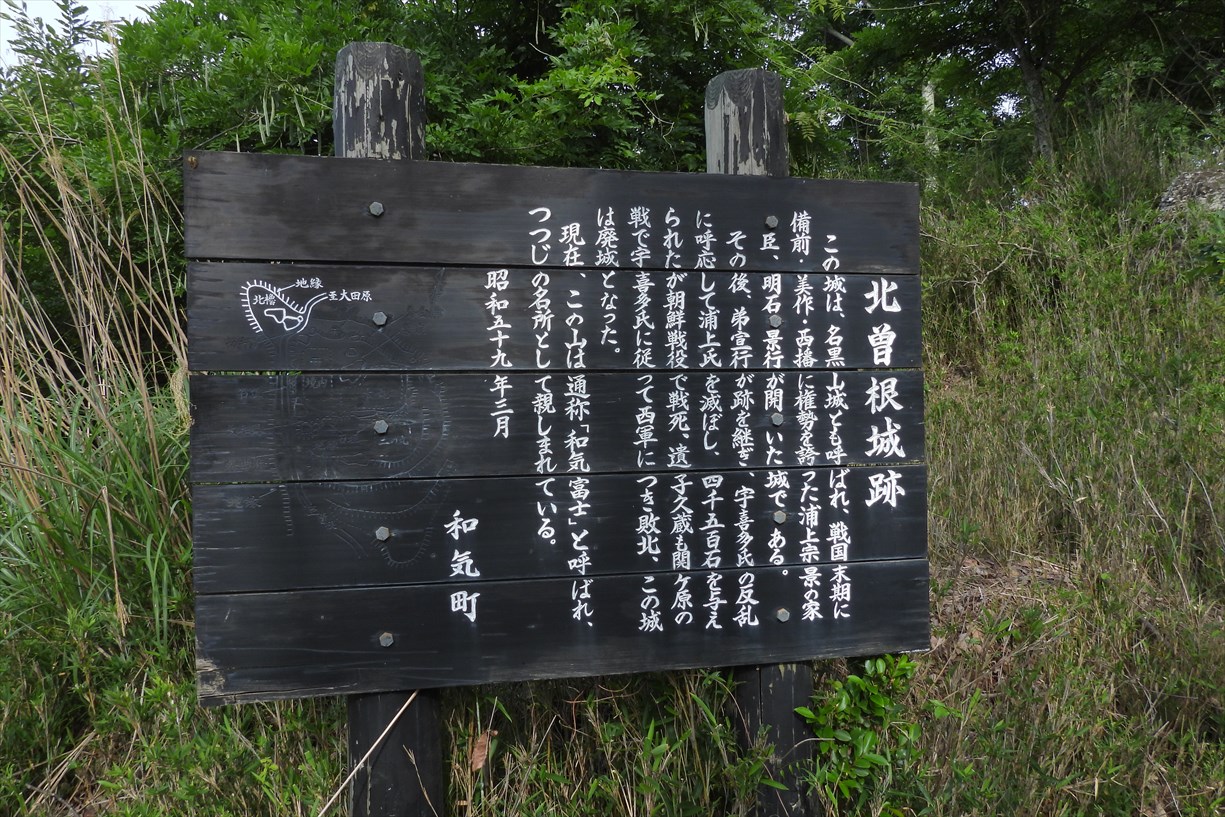 北曽根城跡
この城は、名黒山城とも呼ばれ、戦国末期に
備前・美作・西播に権勢を誇った浦上宗景の家
臣、明石景行が開いた城である。
その後、弟宣行が跡を継ぎ、宇喜多氏の反乱
に呼応して浦上氏を滅ぼし、四千五百石を与え
られたが朝鮮戦役で戦死、遺子久蔵も関ケ原の
戦で宇喜多氏に従って西軍につき敗北、この城
は廃城となった。
現在、この山は通称「和気富士」と呼ばれ、
つつじの名所として親しまれている。
昭和五十九年三月
和気町
地縁
至大田原
北櫓